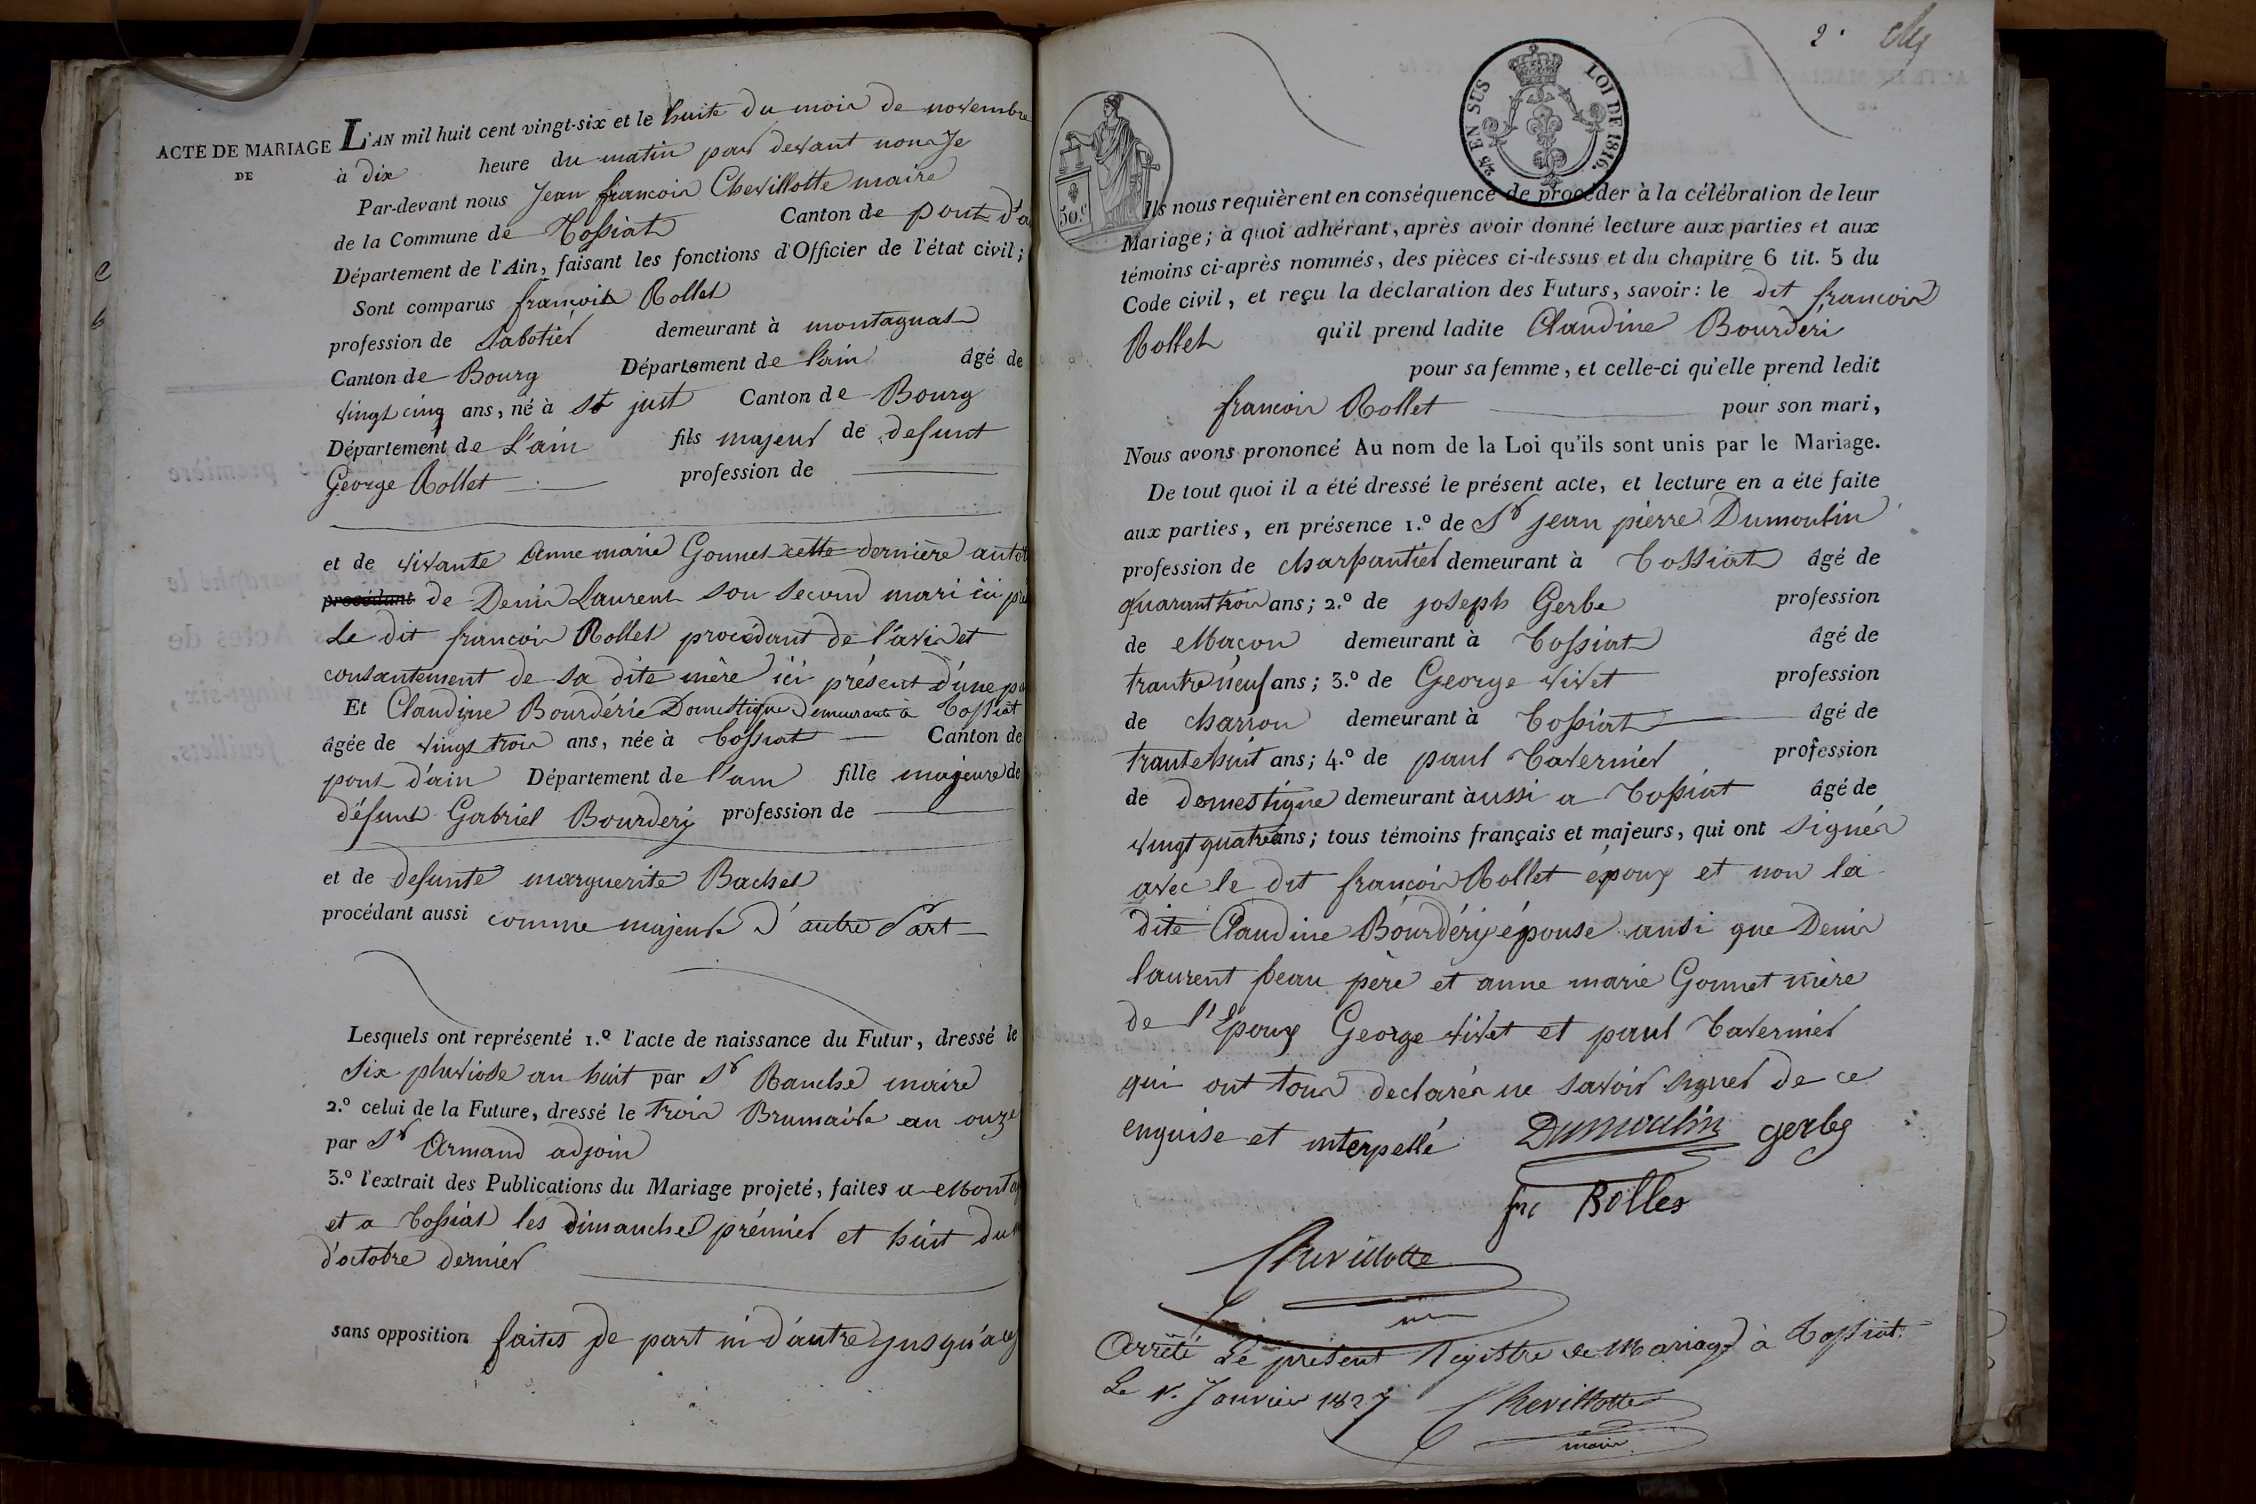 ACTE DE MARIAGE
DE
L'AN mil huit cent vingt-six et le huite du mois de novembre
à dix heure du matin par devant nous Je
Par-devant nous Jean francois Chevillotte maire
de la Commune de Tossiat Canton de pont d'a
Département de l'Ain, faisant les fonctions d'Officier de l'état civil;
Sont comparus francois Rollet
profession de Sabotier demeurant à montagnat
Canton de Bourg Département de l'ain âgé de
vingt cinq ans, né à st just Canton de Bourg
Département de L'ain fils majeur de defunt
George Rollet profession de
et de vivante Anne marie Gonnet cette dernière autor
procédant de Denis Laurent son second mari ici pré
Le dit francois Rollet procédant de l'avis et
consantement de sa dite mère ici présent d'une pa
Et Claudine Bourdérie Domestique Demeurante a Tossiat
âgée de vingt trois ans, née à Tossiat Canton de
pont d'ain Département de l'ain fille majeure de
défunt Gabriel Bourdery profession de
et de defunte marguerite Bachet
procédant aussi comme majeure d'autre Part
Lesquels ont représenté 1.º l'acte de naissance du Futur, dressé le
Six pluviose an huit par Sr Ranche maire
2.º celui de la Future, dressé le trois Brumaire an onze
par Sr Armand adjoin
3.º l'extrait des Publications du Mariage projeté, faites a Monta
et a Tossiat les dimanches prémier et huit du
d'octobre dernier
sans opposition faites de part ni d'autre jusqu'a ce
2.
50.c
2/5 EN SUS LOI DE 1816.
Ils nous requièrent en conséquence de procéder à la célébration de leur
Mariage; à quoi adhérant, après avoir donné lecture aux parties et aux
témoins ci-après nommés, des pièces ci-dessus et du chapitre 6 tit. 5 du
Code civil, et reçu la déclaration des Futurs, savoir: le dit francois
Rollet qu'il prend ladite Claudine Bourderi
pour sa femme, et celle-ci qu'elle prend ledit
francois Rollet pour son mari,
Nous avons prononcé Au nom de la Loi qu'ils sont unis par le Mariage.
De tout quoi il a été dressé le présent acte, et lecture en a été faite
aux parties, en présence 1.º de Sr jean pierre Dumoulin
profession de charpantier demeurant à Tossiat âgé de
quarant trois ans; 2.º de joseph Gerbe profession
de Maçon demeurant à Tossiat âgé de
trantre neuf ans; 3.º de George vivet profession
de charron demeurant à Tossiat âgé de
trante huit ans; 4.º de paul Tavernier profession
de domestique demeurant à aussi a Tossiat âgé de
vingt quatre ans; tous témoins français et majeurs, qui ont signés
avec le dit francois Rollet époux et non la
dite Claudine Bourdéry épouse ainsi que Denis
laurent beau père et anne marie Gonnet mère
de l'Epoux George vivet et paul Tavernier
qui ont tous declarés ne savoir signer de ce
enquise et interpellé Dumoulin gerbe
fnc Rolles
Chevillotte
Arrêté Le présent Registre de Mariage à Tossiat
Le 1. Janvier 1827 Chevillotte
maire